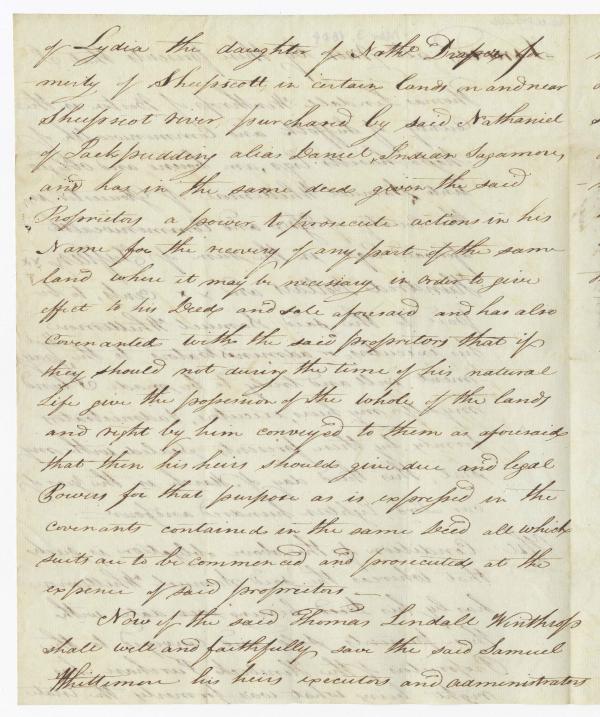 of Lydia the daughter of Nath.l Draper for-
merly of Sheepscott, in certain lands on and near
Sheepscot river purchased by said Nathaniel
of Jackpudding alias Daniel, Indian Sagamore,
and has in the same deed given the said
Proprietors a power to prosecute actions in his
Name for the recovery of any part of the same
land where it may be necessary in order to give
effect to his Deed and sale aforesaid and has also
Covenanted with the said proprietors that if
they should not during the time of his natural
Life give the possession of the whole of the lands
and right by him conveyed to them as aforesaid
that then his heirs should give due and legal
Powers for that purpose as is expressed in the
covenants contained in the same Deed all which
suits are to be commenced and prosecuted at the
expence of said proprietors —
Now if the said Thomas Lindall Winthrop
shall well and faithfully save the said Samuel
Whittemore his heirs executors and administrators